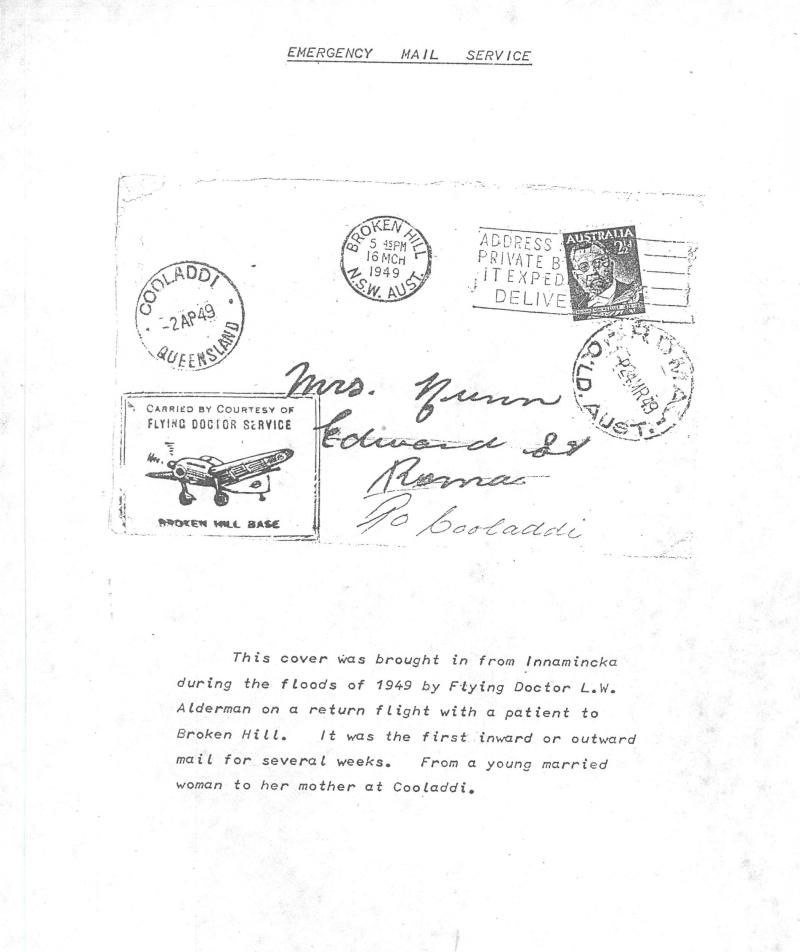 EMERGENCY MAIL SERVICE
BROKEN HILL
5 45PM
16 MCH
1949
N.S.W. AUST.
ADDRESS
PRIVATE B
IT EXPED
DELIVE
AUSTRALIA
2½d
COOLADDI
-2AP49
QUEENSLAND
ROMA
24MR49
QLD. AUST.
Mrs. Nunn
Edward St
Roma
Po Cooladdi
CARRIED BY COURTESY OF
FLYING DOCTOR SERVICE
BROKEN HILL BASE
This cover was brought in from Innamincka
during the floods of 1949 by Flying Doctor L.W.
Alderman on a return flight with a patient to
Broken Hill. It was the first inward or outward
mail for several weeks. From a young married
woman to her mother at Cooladdi.